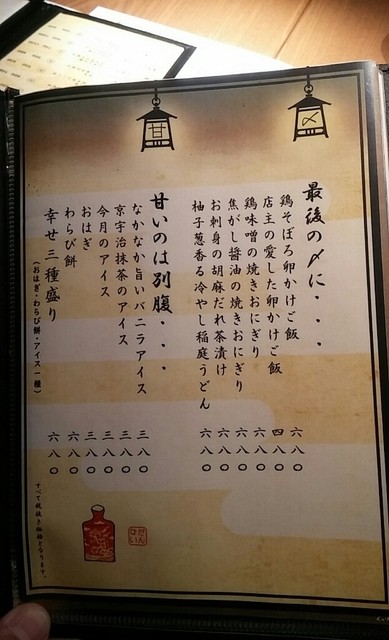 〆
最後の〆に・・・
鶏そぼろ卵かけご飯 六八〇
店主の愛した卵かけご飯 四八〇
鶏味噌の焼きおにぎり 六八〇
焦がし醤油の焼きおにぎり 六八〇
お刺身の胡麻だれ茶漬け 六八〇
柚子葱香る冷やし稲庭うどん 六八〇
甘
甘いのは別腹・・・
なかなか旨いバニラアイス 三八〇
京宇治抹茶のアイス 三八〇
今月のアイス 三八〇
おはぎ 三八〇
わらび餅 六八〇
幸せ三種盛り 六八〇
(おはぎ・わらび餅・アイス一種)
すべて税抜き価格となります。